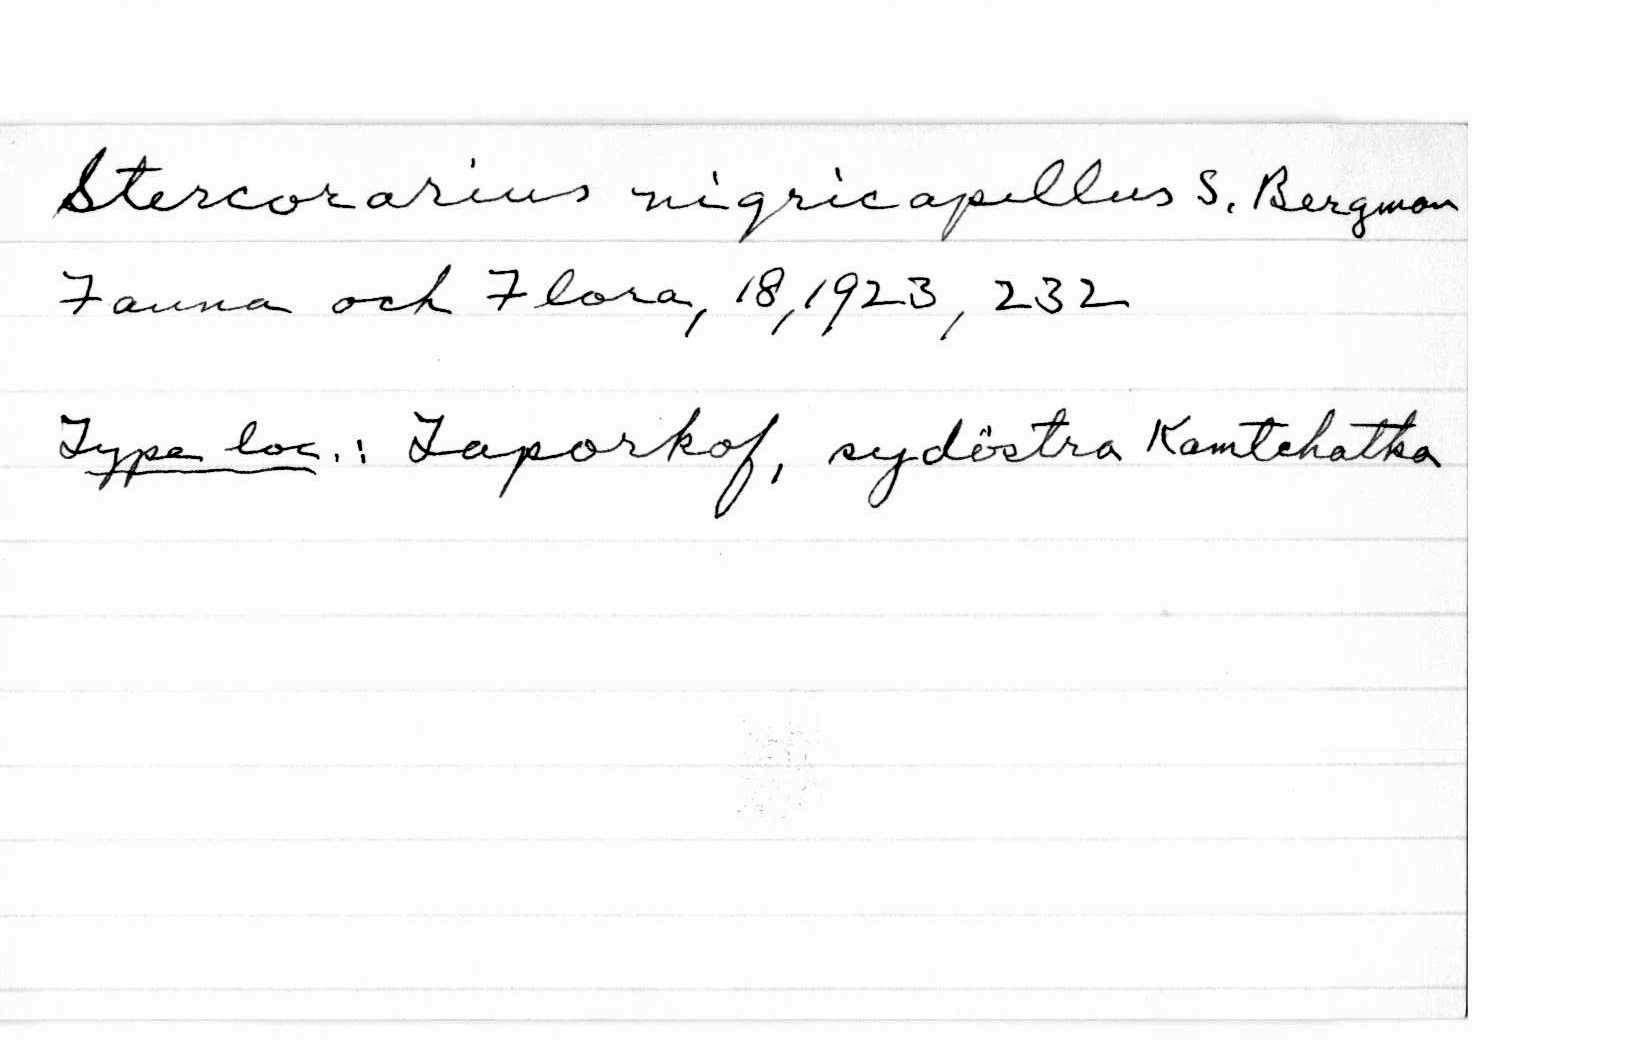 Stercorarius nigricapillus S. Bergman
Fauna och Flora, 18, 1923, 232
Type loc.: Japorkof, sydöstra Kamtchatka